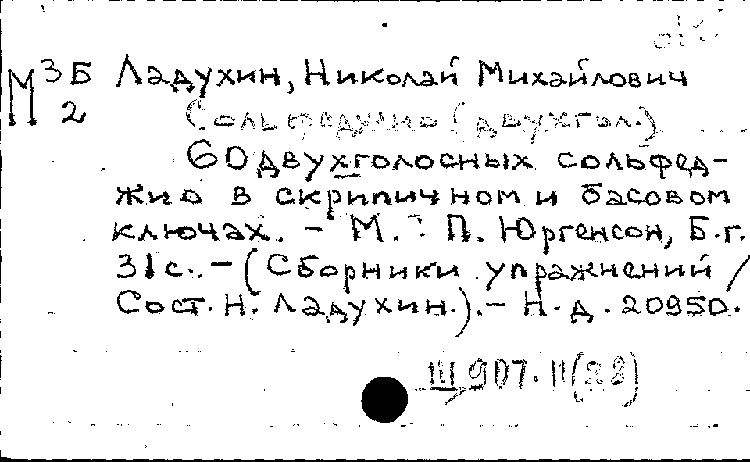 М 3 Б Ладухин, Николай Михайлович
2 Сольфеджио (двухгол.)
60 двухголосных сольфед-
жио в скрипичном и басовом
ключах. - М.: П. Юргенсон, Б.г.
31с.. - (Сборники упражнений /
Сост. Н. Ладухин.). - Н.д. 20950.
III 907. II (28)